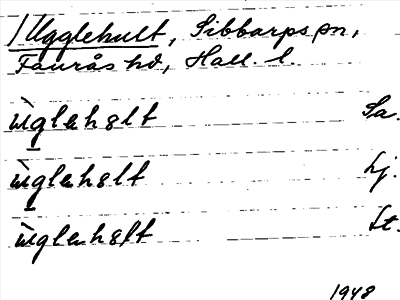 /Ugglehult, Sibbarps sn,
Faurås hd, Hall. l.
ùglahølt Sa.
ùglahølt Lj.
ùglahølt St.
1948